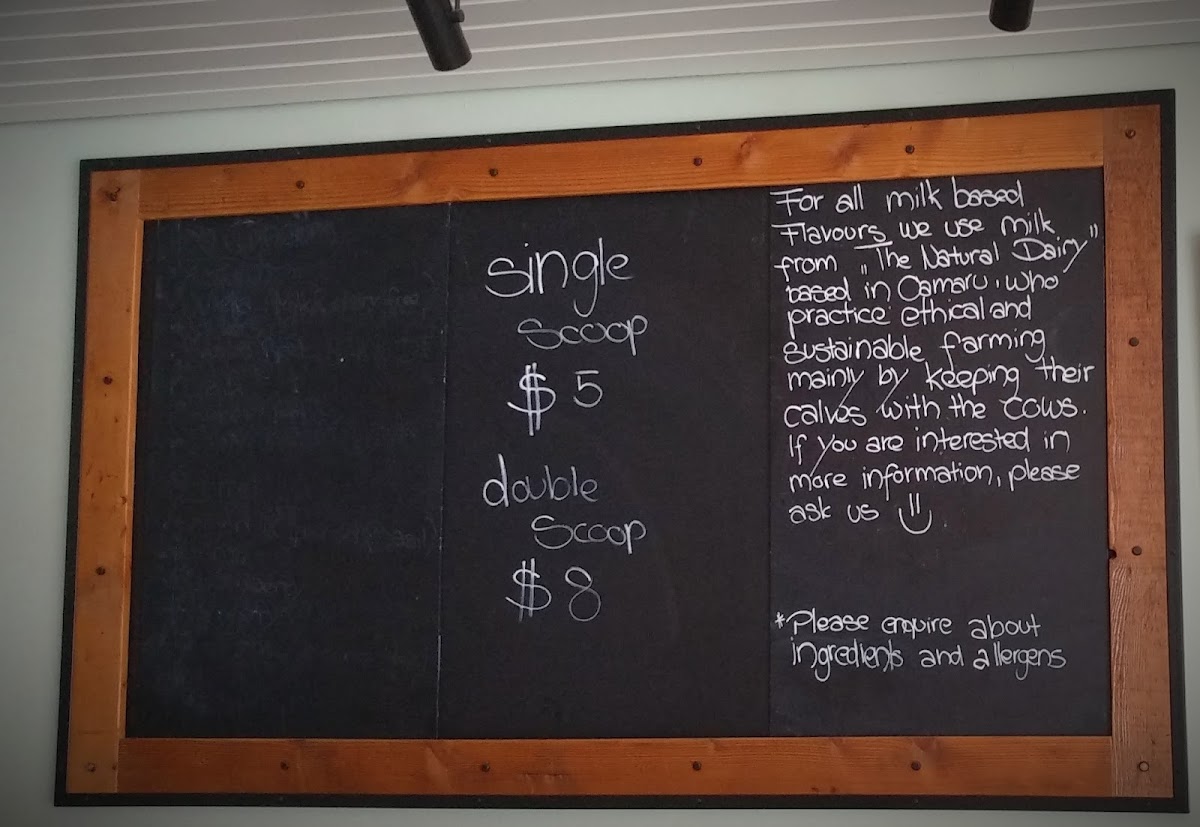 single
scoop
$5
double
scoop
$8
For all milk based
Flavours we use milk
from „The Natural Dairy"
based in Oamaru, who
practice ethical and
sustainable farming
mainly by keeping their
calves with the cows.
If you are interested in
more information, please
ask us
*Please enquire about
ingredients and allergens